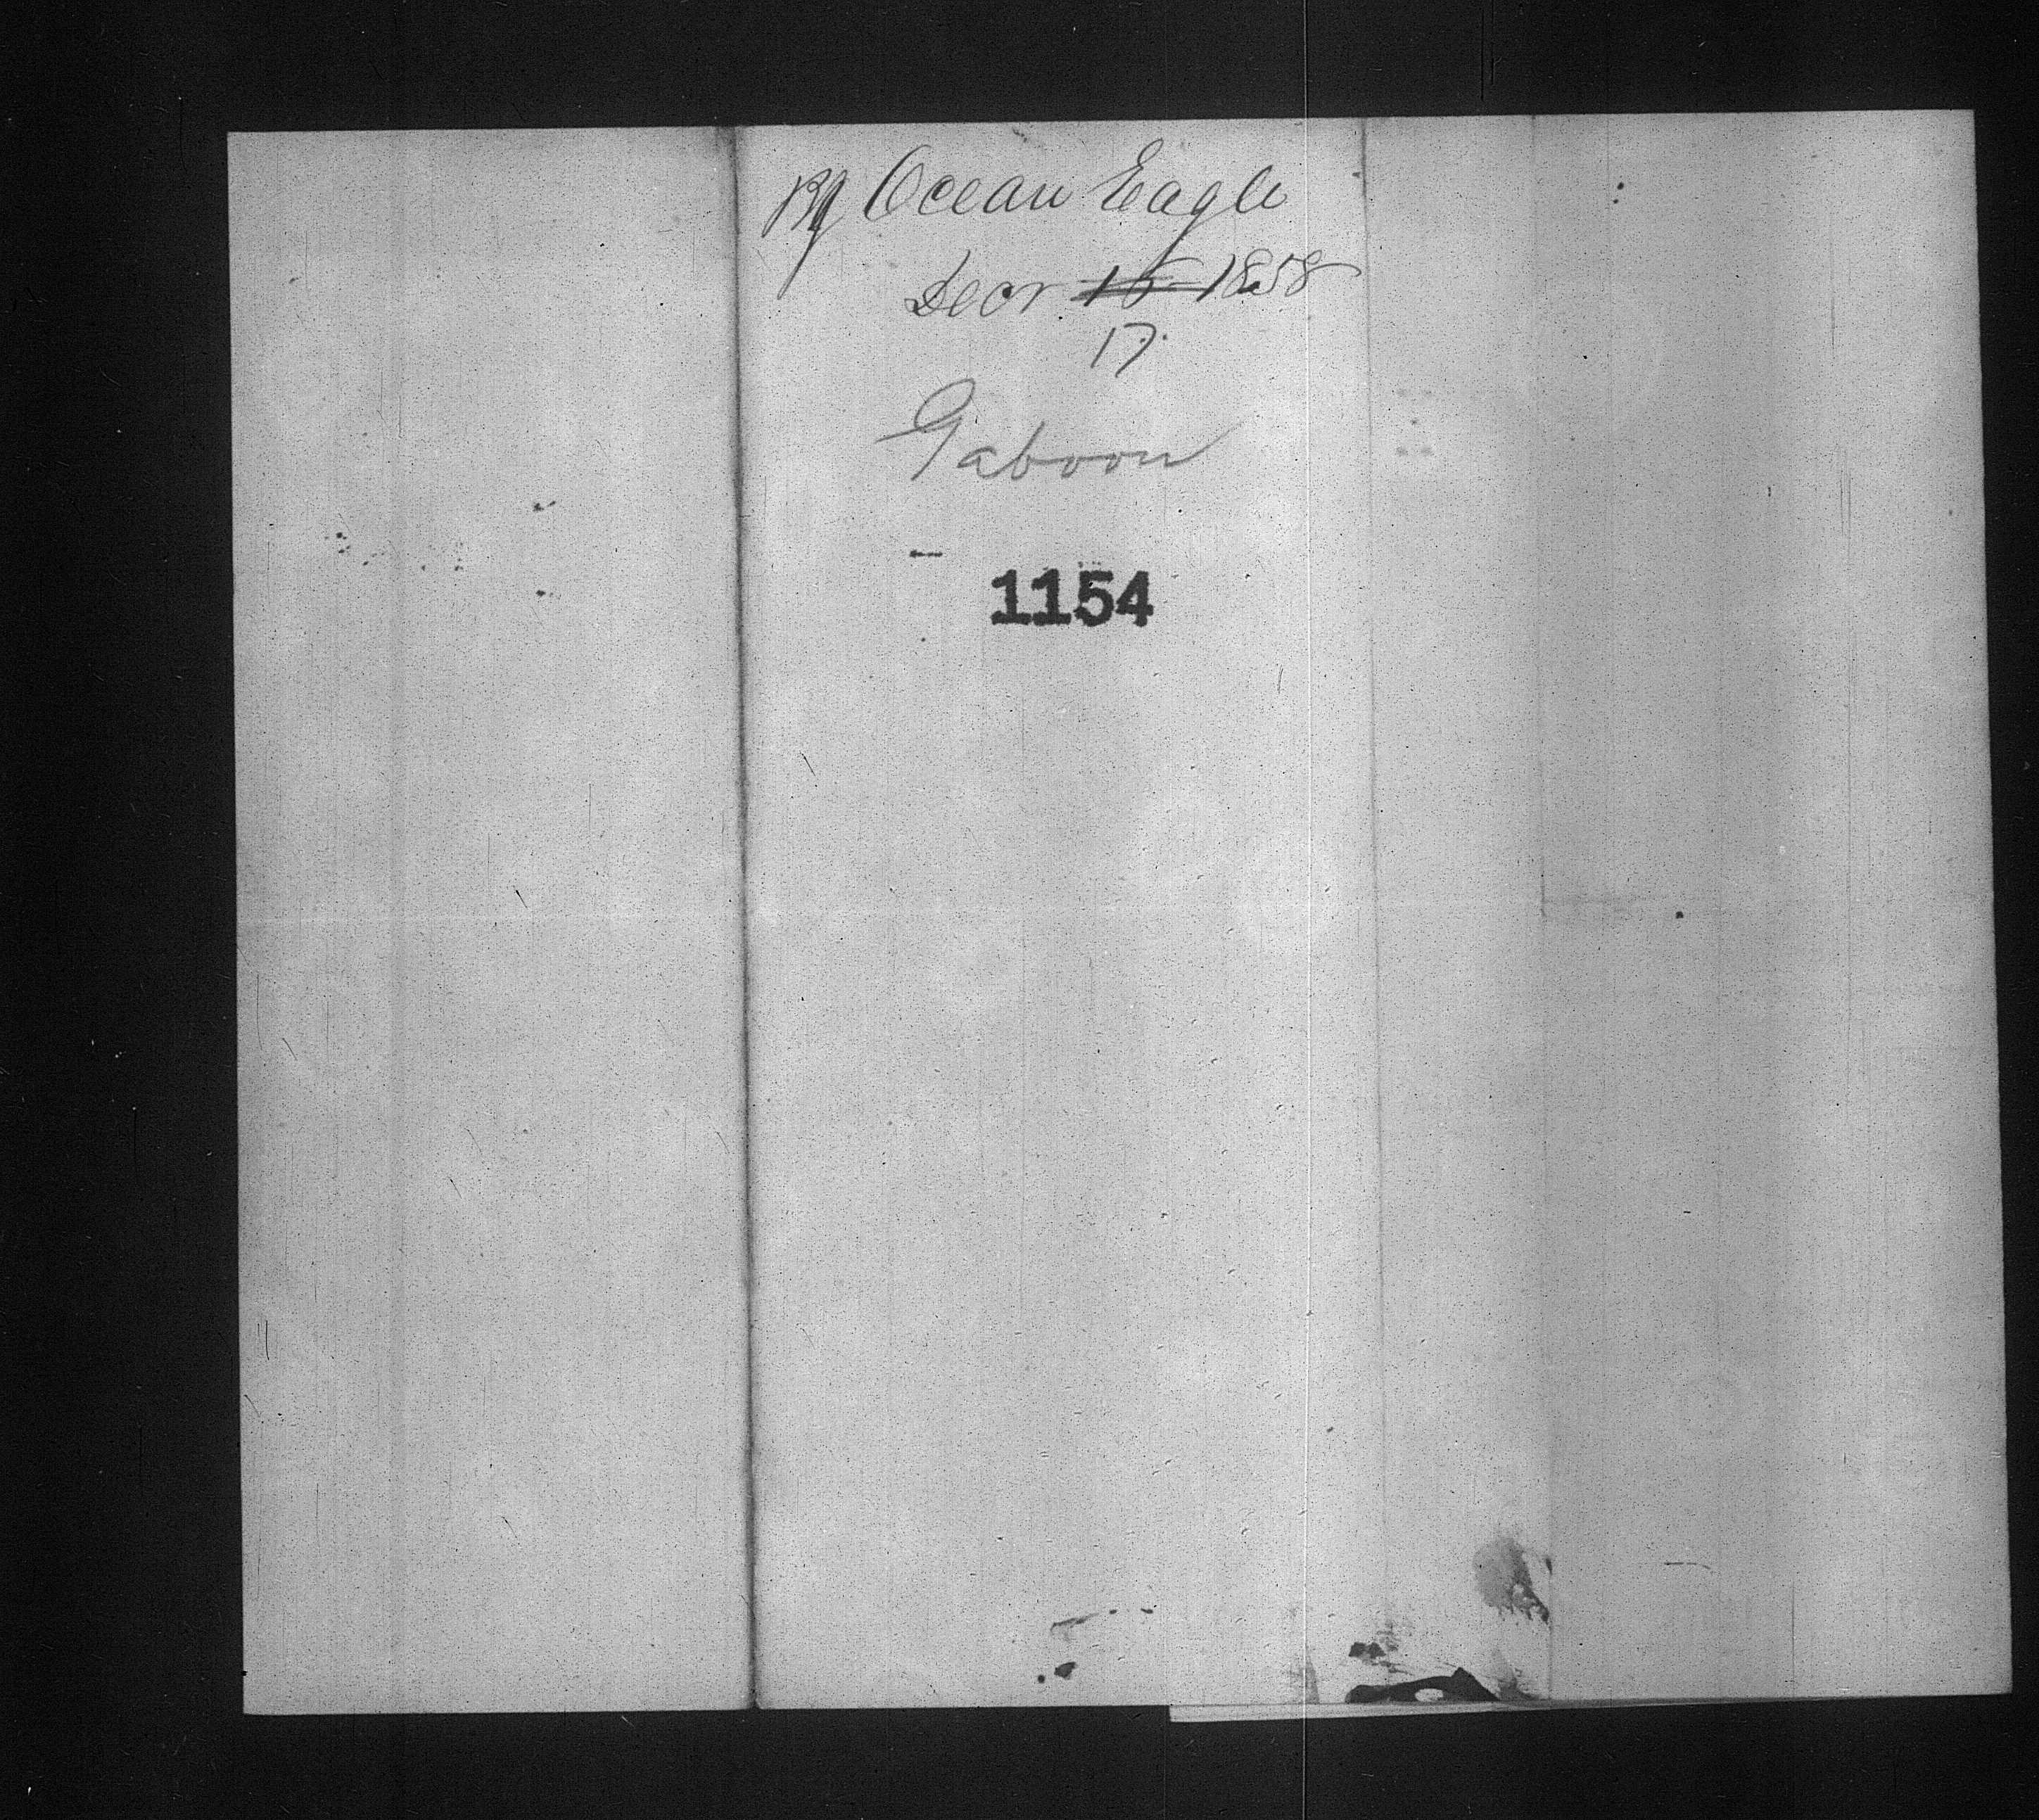 Bg Ocean Eagle
Decr 16 1858
17
Gaboon
1154